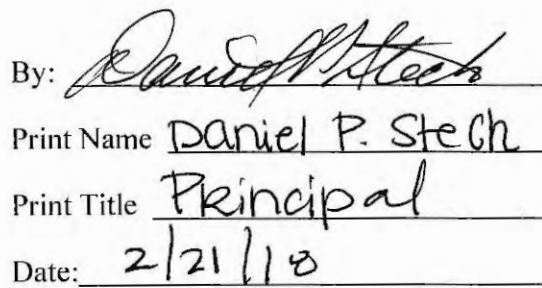 By: Daniel P Stech
Print Name Daniel P. Stech
Print Title Principal
Date: 2/21/18